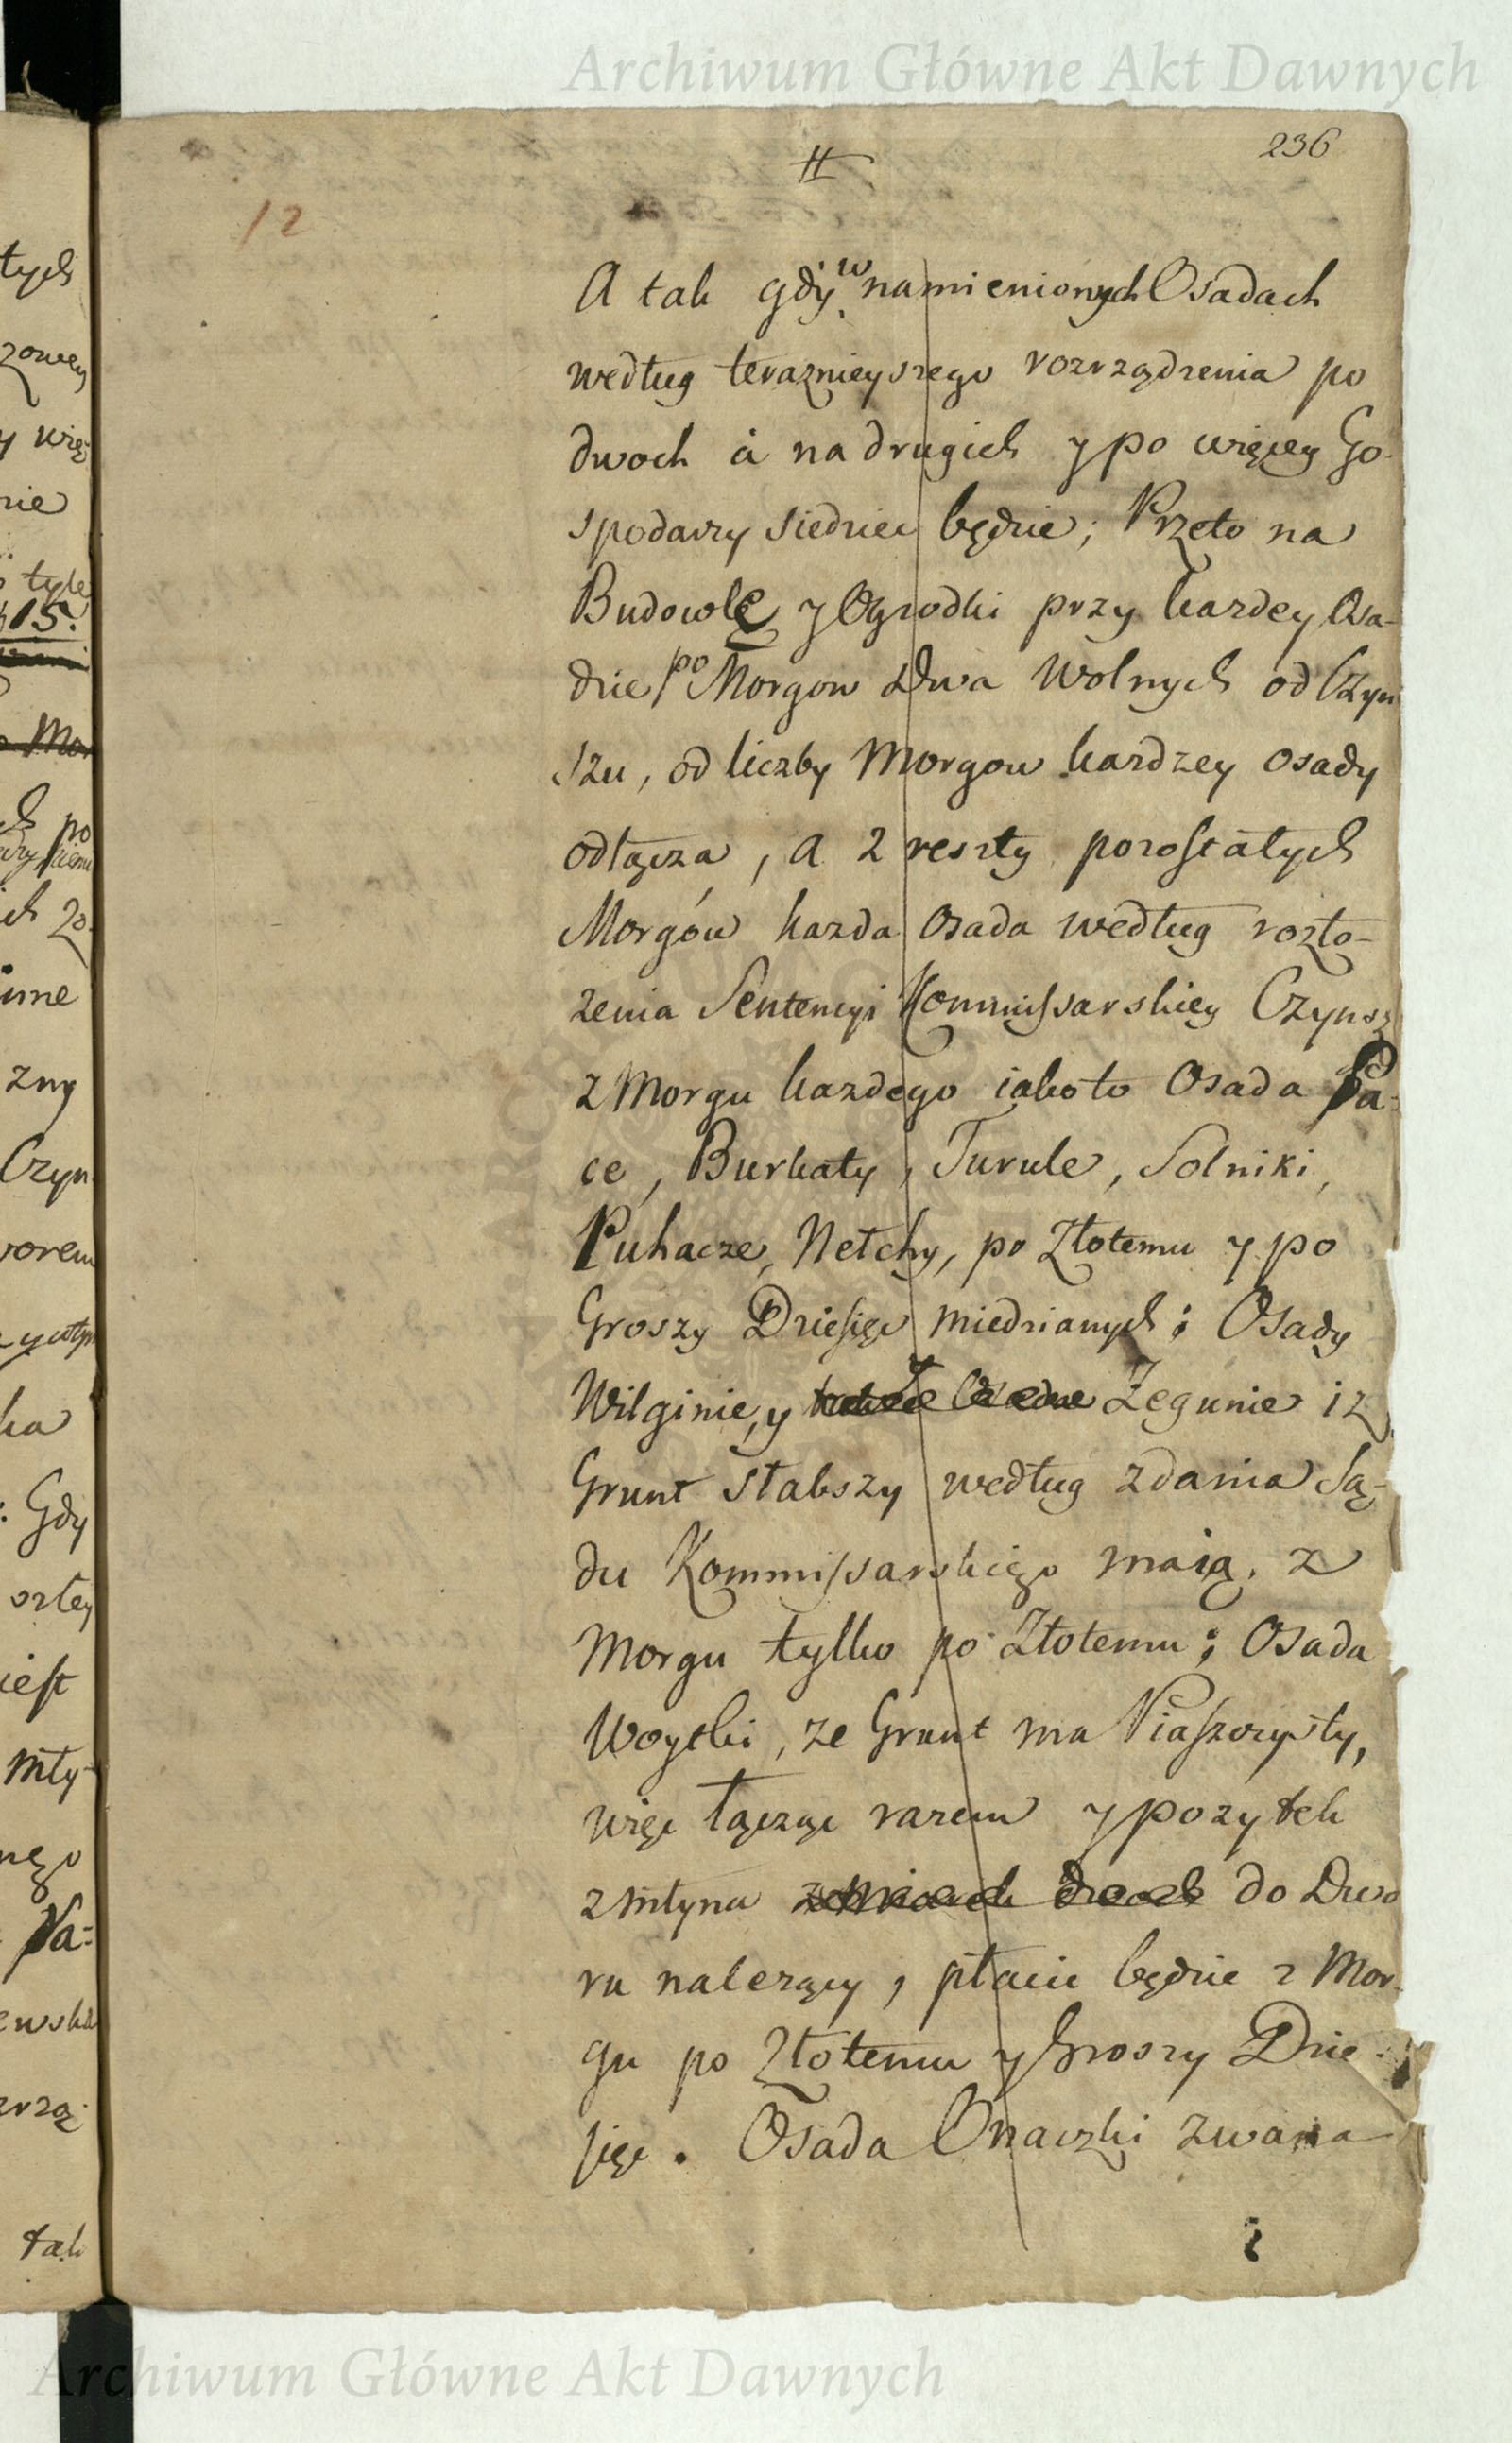 Archiwum Główne Akt Dawnych
236
12
A tak gdy w namienionych Osadach
według teraznieyszego rozrządzenia po
dwoch á na drugich y po więcey Go-
spodarzy siedziec będzie; Przeto na
Budowlę y Ogrodki przy kazdey Osa-
dzie po Morgow Dwa Wolnych od Czyn
szu, od liczby Morgow kazdzey osady
odłącza, a z reszty pozostałych
Morgów kazda Osada według rozło-
zenia Sentencyi Kommissarskiey Czynsz
z Morgu kazdego iako to Osada Pa-
ce, Burkaty, Turule, Solniki,
Puhacze, Netchy, po Złotemu y po
Groszy Dziesięc miedzianych; Osady
Wilginie, y Zegunie iz
Grunt słabszy według zdania Są-
du Kommissarskiego maią, z
Morgu tylko po Złotemu; Osada
Woytki, ze Grunt ma Piaszczysty,
więc łącząc razem y pozytek
z młyna do Dwo
ru nalezący, płacic będzie z Mor-
gu po Złotemu y Groszy Dzie-
sięc. Osada Onaczki zwana
tych
zowey
y wię-
nie
tyle
15.
po
ich zo-
inne
zny
Czyn
worem
ka
: Gdy
iest
mły-
nego
Pa-
ewska
tak
Archiwum Główne Akt Dawnych